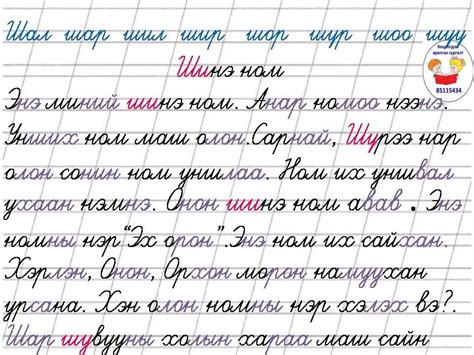 Шал шар шил шир шор шүр шоо шүү
Шинэ ном
Энэ миний шинэ ном. Анар номоо нээнэ.
Унших ном маш олон. Сарнай, Шүрээ нар
олон сонин ном уншлаа. Ном их уншвал
ухаан нэмнэ. Онон шинэ ном авав. Энэ
номны нэр “Эх орон”. Энэ ном их сайхан.
Хэрлэн, Онон, Орхон мөрөн намуухан
урсана. Хэн олон номны нэр хэлэх вэ?.
Шар шувууны холын хараа маш сайн
85115434